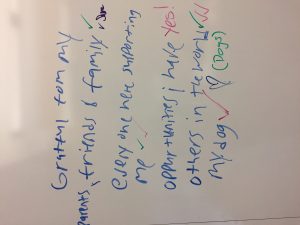 Grateful for my
parents, friends & family
everyone here supporting
me
opportunities i have Yes!
others in the world
my dog (Dogs)